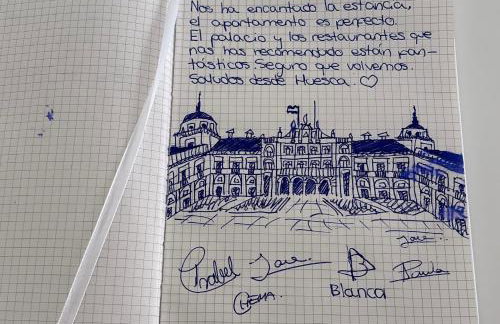 Nos ha encantado la estancia,
el apartamento es perfecto.
El palacio y los restaurantes que
nos has recomendado están fan-
tásticos. Seguro que volvemos.
Saludos desde Huesca. ♡
Isabel
CHEMA.
Blanca
Paula